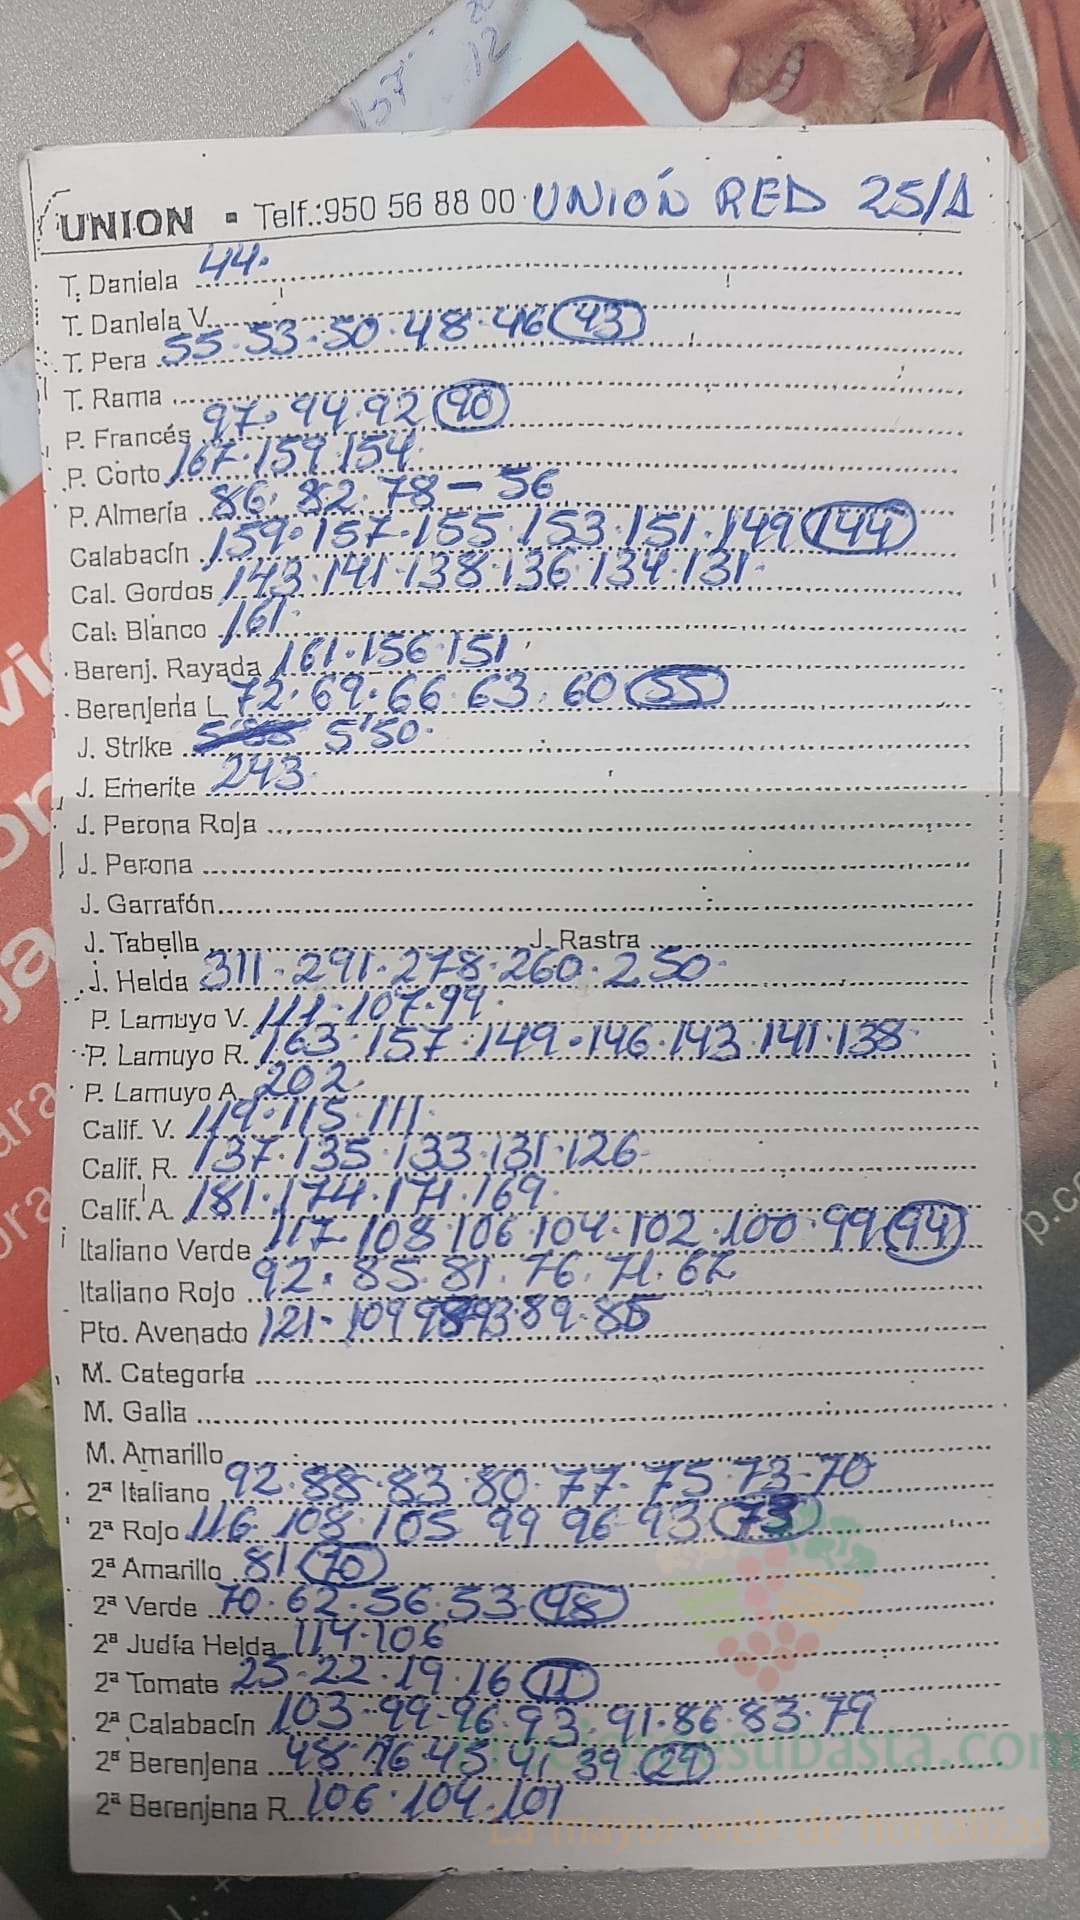 157 12
UNION - Telf.:950 56 88 00 UNIÓN RED 25/1
T. Daniela 44.
T. Daniela V.
T. Pera 55.53.50.48.46 43
T. Rama
P. Francés 97.94.92 90
P. Corto 167.159.154
P. Almería 86.82.78-56
Calabacín 159.157.155.153.151.149 144
Cal. Gordos 143.141.138.136.134.131.
Cal. Blanco 161.
Berenj. Rayada 161.156.151
Berenjena L 72.69.66.63.60 55
J. Strike 5'50.
J. Emerite 243.
J. Perona Roja
J. Perona
J. Garrafón
J. Tabella J. Rastra
J. Helda 311.291.278.260.250.
P. Lamuyo V. 111.107.99.
P. Lamuyo R. 163.157.149.146.143.141.138.
P. Lamuyo A. 202.
Calif. V. 119.115.111.
Calif. R. 137.135.133.131.126.
Calif. A. 181.174.171.169.
Italiano Verde 117.108.106.104.102.100.99 94
Italiano Rojo 92.85.81.76.71.67
Pto. Avenado 121.109 93.89.85
M. Categoría
M. Galia
M. Amarillo
2ª Italiano 92.88.83.80.77.75.73-70
2ª Rojo 116.108.105 99 96.93 73
2ª Amarillo 81 70
2ª Verde 70.62.56.53 48
2ª Judía Helda 114.106
2ª Tomate 25.22.19.16 11
2ª Calabacín 103.99.96.93.91.86.83.79
2ª Berenjena 48 46.45.41 39 29
2ª Berenjena R. 106.104.101
esubasta.com
La mayor web de hortalizas